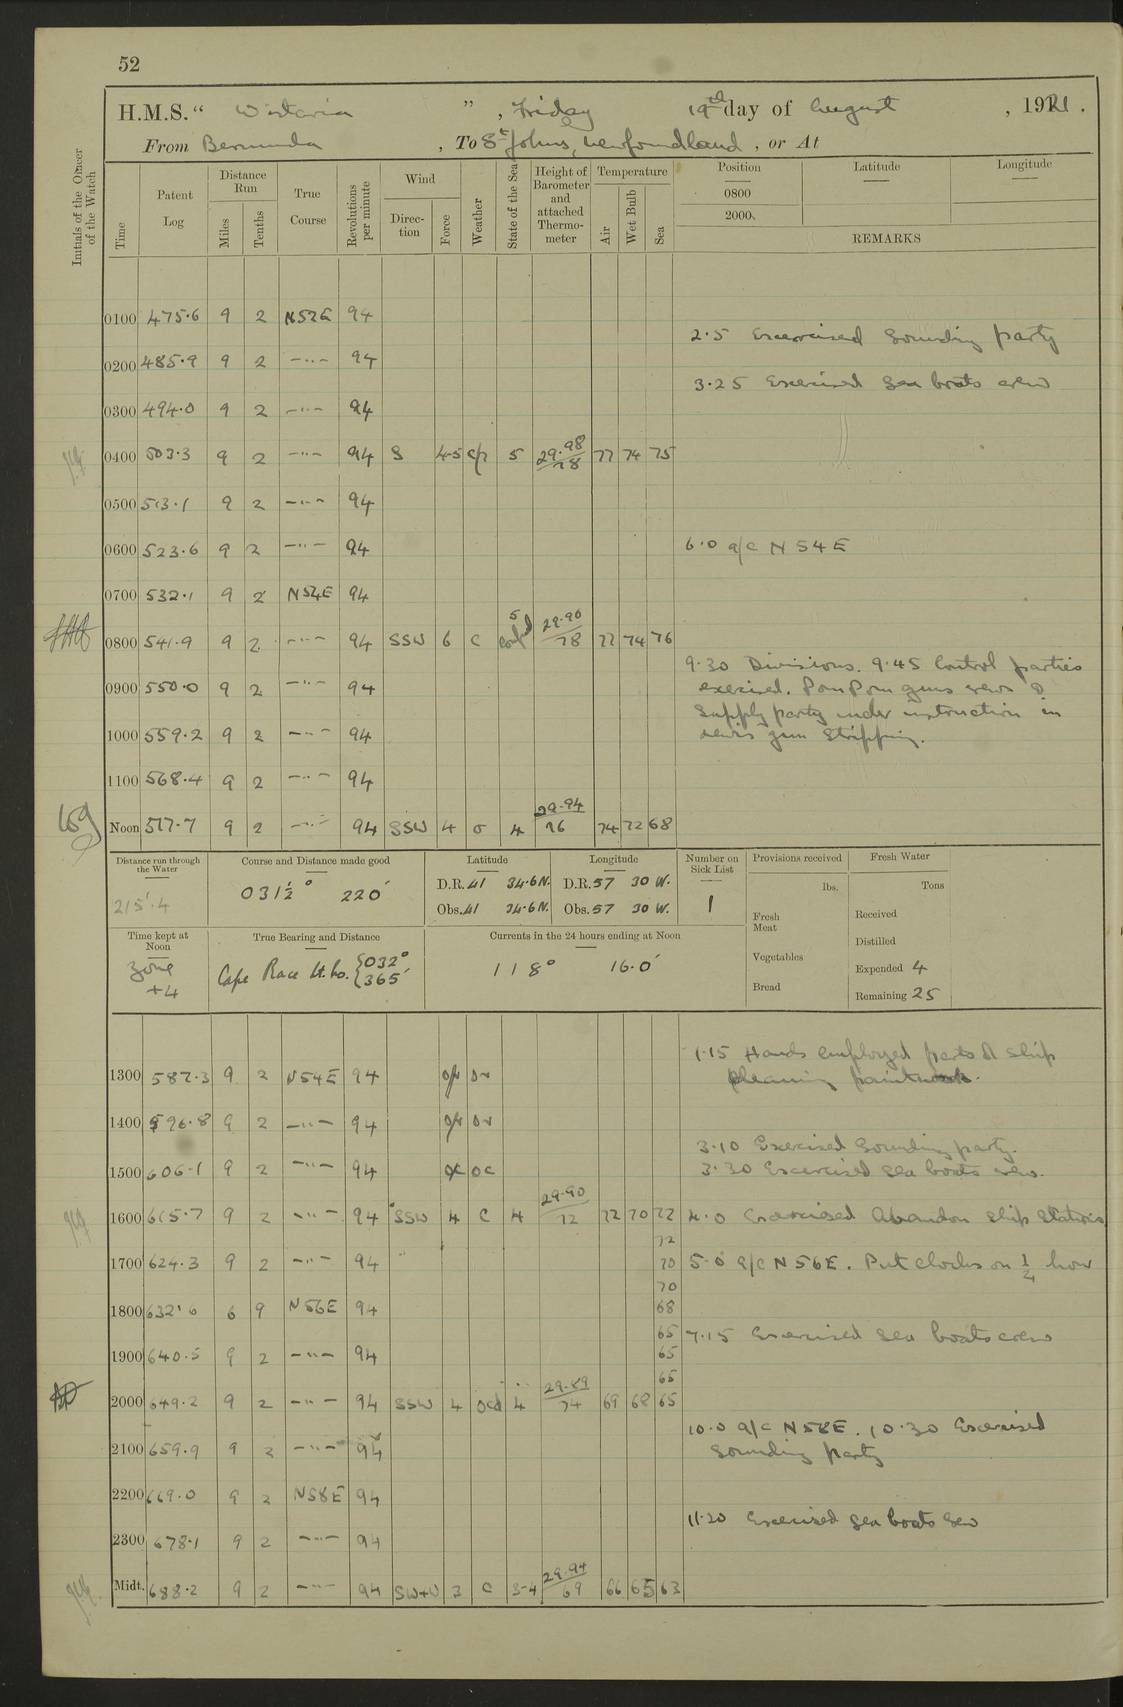 52
H.M.S. " Wistaria ", Friday 19th day of August, 1921.
From Bermuda, To St Johns, Newfoundland, or At
Initials of the Officer of the Watch
Time Patent Log Distance Run Miles Tenths True Course Revolutions per minute Wind Direction Force Weather State of the Sea Height of Barometer and attached Thermometer Temperature Air Wet Bulb Sea Position Latitude Longitude
0800
2000
REMARKS
0100 475.6 9 2 N52E 94
2.5 Excercised Sounding party
0200 485.9 9 2 —"— 94
3.25 Exercised Sea boats crew
0300 494.0 9 2 —"— 94
0400 503.3 9 2 —"— 94 S 4-5 5 29.98 78 77 74 75
0500 513.1 9 2 —"— 94
0600 523.6 9 2 —"— 94 6.0 a/c N 54 E
0700 532.1 9 2 N54E 94
0800 541.9 9 2 —"— 94 SSW 6 c 5 29.90 78 77 74 76
9.30 Divisions. 9.45 Control parties
0900 550.0 9 2 —"— 94 exercised. Pom Pom guns crews &
Supply party under instruction in
1000 559.2 9 2 —"— 94 Lewis gun Stripping.
1100 568.4 9 2 —"— 94
Noon 577.7 9 2 —"— 94 SSW 4 o 4 29.94 76 74 72 68
Distance run through the Water Course and Distance made good Latitude Longitude Number on Sick List Provisions received Fresh Water
215'.4 031½° 220' D.R. 41 34.6 N. D.R. 57 30 W. 1 lbs. Tons
Obs. 41 34.6 N. Obs. 57 30 W. Fresh Meat Received
Time kept at Noon True Bearing and Distance Currents in the 24 hours ending at Noon Distilled
Zone +4 Cape Race Lt. Ho. {032° 365' 118° 16.0' Vegetables Expended 4
Bread Remaining 25
1.15 Hands employed parts of ship
1300 587.3 9 2 N54E 94 cleaning paintwork.
1400 596.8 9 2 —"— 94
3.10 Exercised Sounding party.
1500 606.1 9 2 —"— 94 oc 3.30 Excercised Sea boats crew.
1600 615.7 9 2 —"— 94 SSW 4 c 4 29.90 72 72 70 72 4.0 Excercised Abandon Ship Stations
72
1700 624.3 9 2 —"— 94 70 5.0 a/c N56E. Put clocks on ¼ hour
70
1800 632.0 6 9 N56E 94 68
65 7.15 Exercised Sea boats crew
1900 640.5 9 2 —"— 94 65
65
2000 649.2 9 2 —"— 94 SSW 4 ocd 4 29.89 74 69 68 65
10.0 a/c N58E. 10.30 Exercised
2100 659.9 9 2 —"— 94 Sounding party
2200 669.0 9 2 N58E 94
11.20 Exercised Sea boats crew
2300 678.1 9 2 —"— 94
Midt. 688.2 9 2 —"— 94 SW+W 3 c 3-4 29.94 69 66 65 63